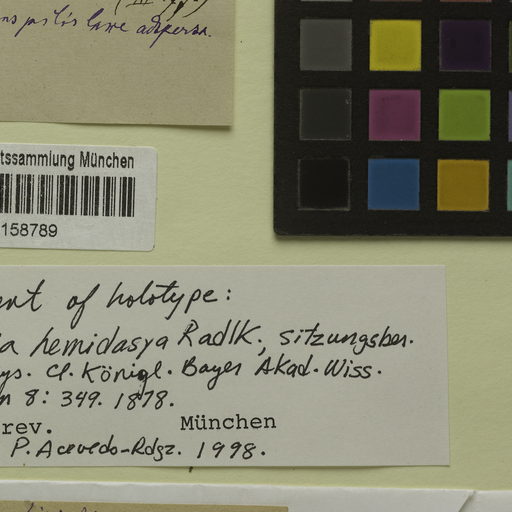 pilis
adspersa.
tssammlung München
158789
ent of holotype:
a hemidasya Radlk., Sitzungsber.
ys. Cl. Königl. Bayer Akad. Wiss.
n 8: 349. 1878.
rev. München
P. Acevedo-Rdgz. 1998.